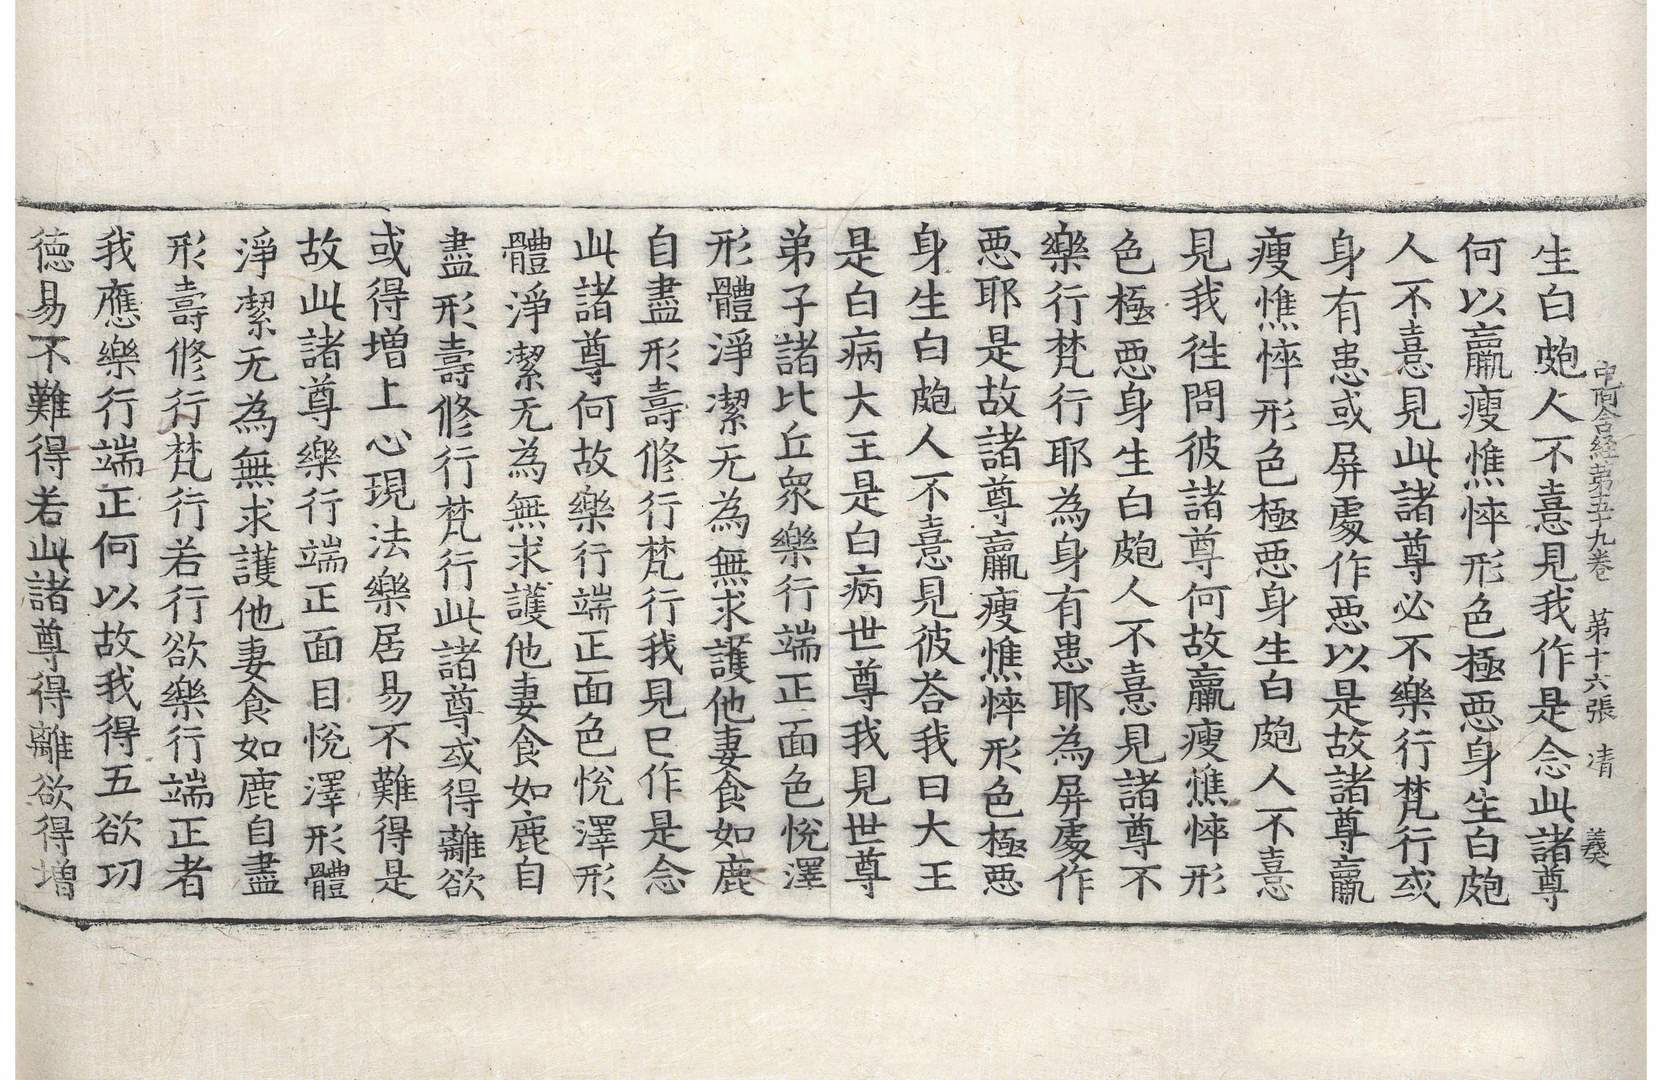 中阿含経第五十九卷 第十六張 凊 羲
生白皰人不憙見我作是念此諸尊
何以羸瘦憔悴形色極悪身生白皰
人不憙見此諸尊必不樂行梵行或
身有患或屏處作悪以是故諸尊羸
瘦憔悴形色極悪身生白皰人不憙
見我往問彼諸尊何故羸瘦憔悴形
色極悪身生白皰人不憙見諸尊不
樂行梵行耶為身有患耶為屏處作
悪耶是故諸尊羸瘦憔悴形色極悪
身生白皰人不憙見彼荅我曰大王
是白病大王是白病世尊我見世尊
弟子諸比丘衆樂行端正面色悅澤
形體淨潔无為無求護他妻食如鹿
自盡形壽修行梵行我見已作是念
此諸尊何故樂行端正面色悅澤形
體淨潔无為無求護他妻食如鹿自
盡形壽修行梵行此諸尊或得離欲
或得增上心現法樂居易不難得是
故此諸尊樂行端正面目悅澤形體
淨潔无為無求護他妻食如鹿自盡
形壽修行梵行若行欲樂行端正者
我應樂行端正何以故我得五欲功
德易不難得若此諸尊得離欲得增